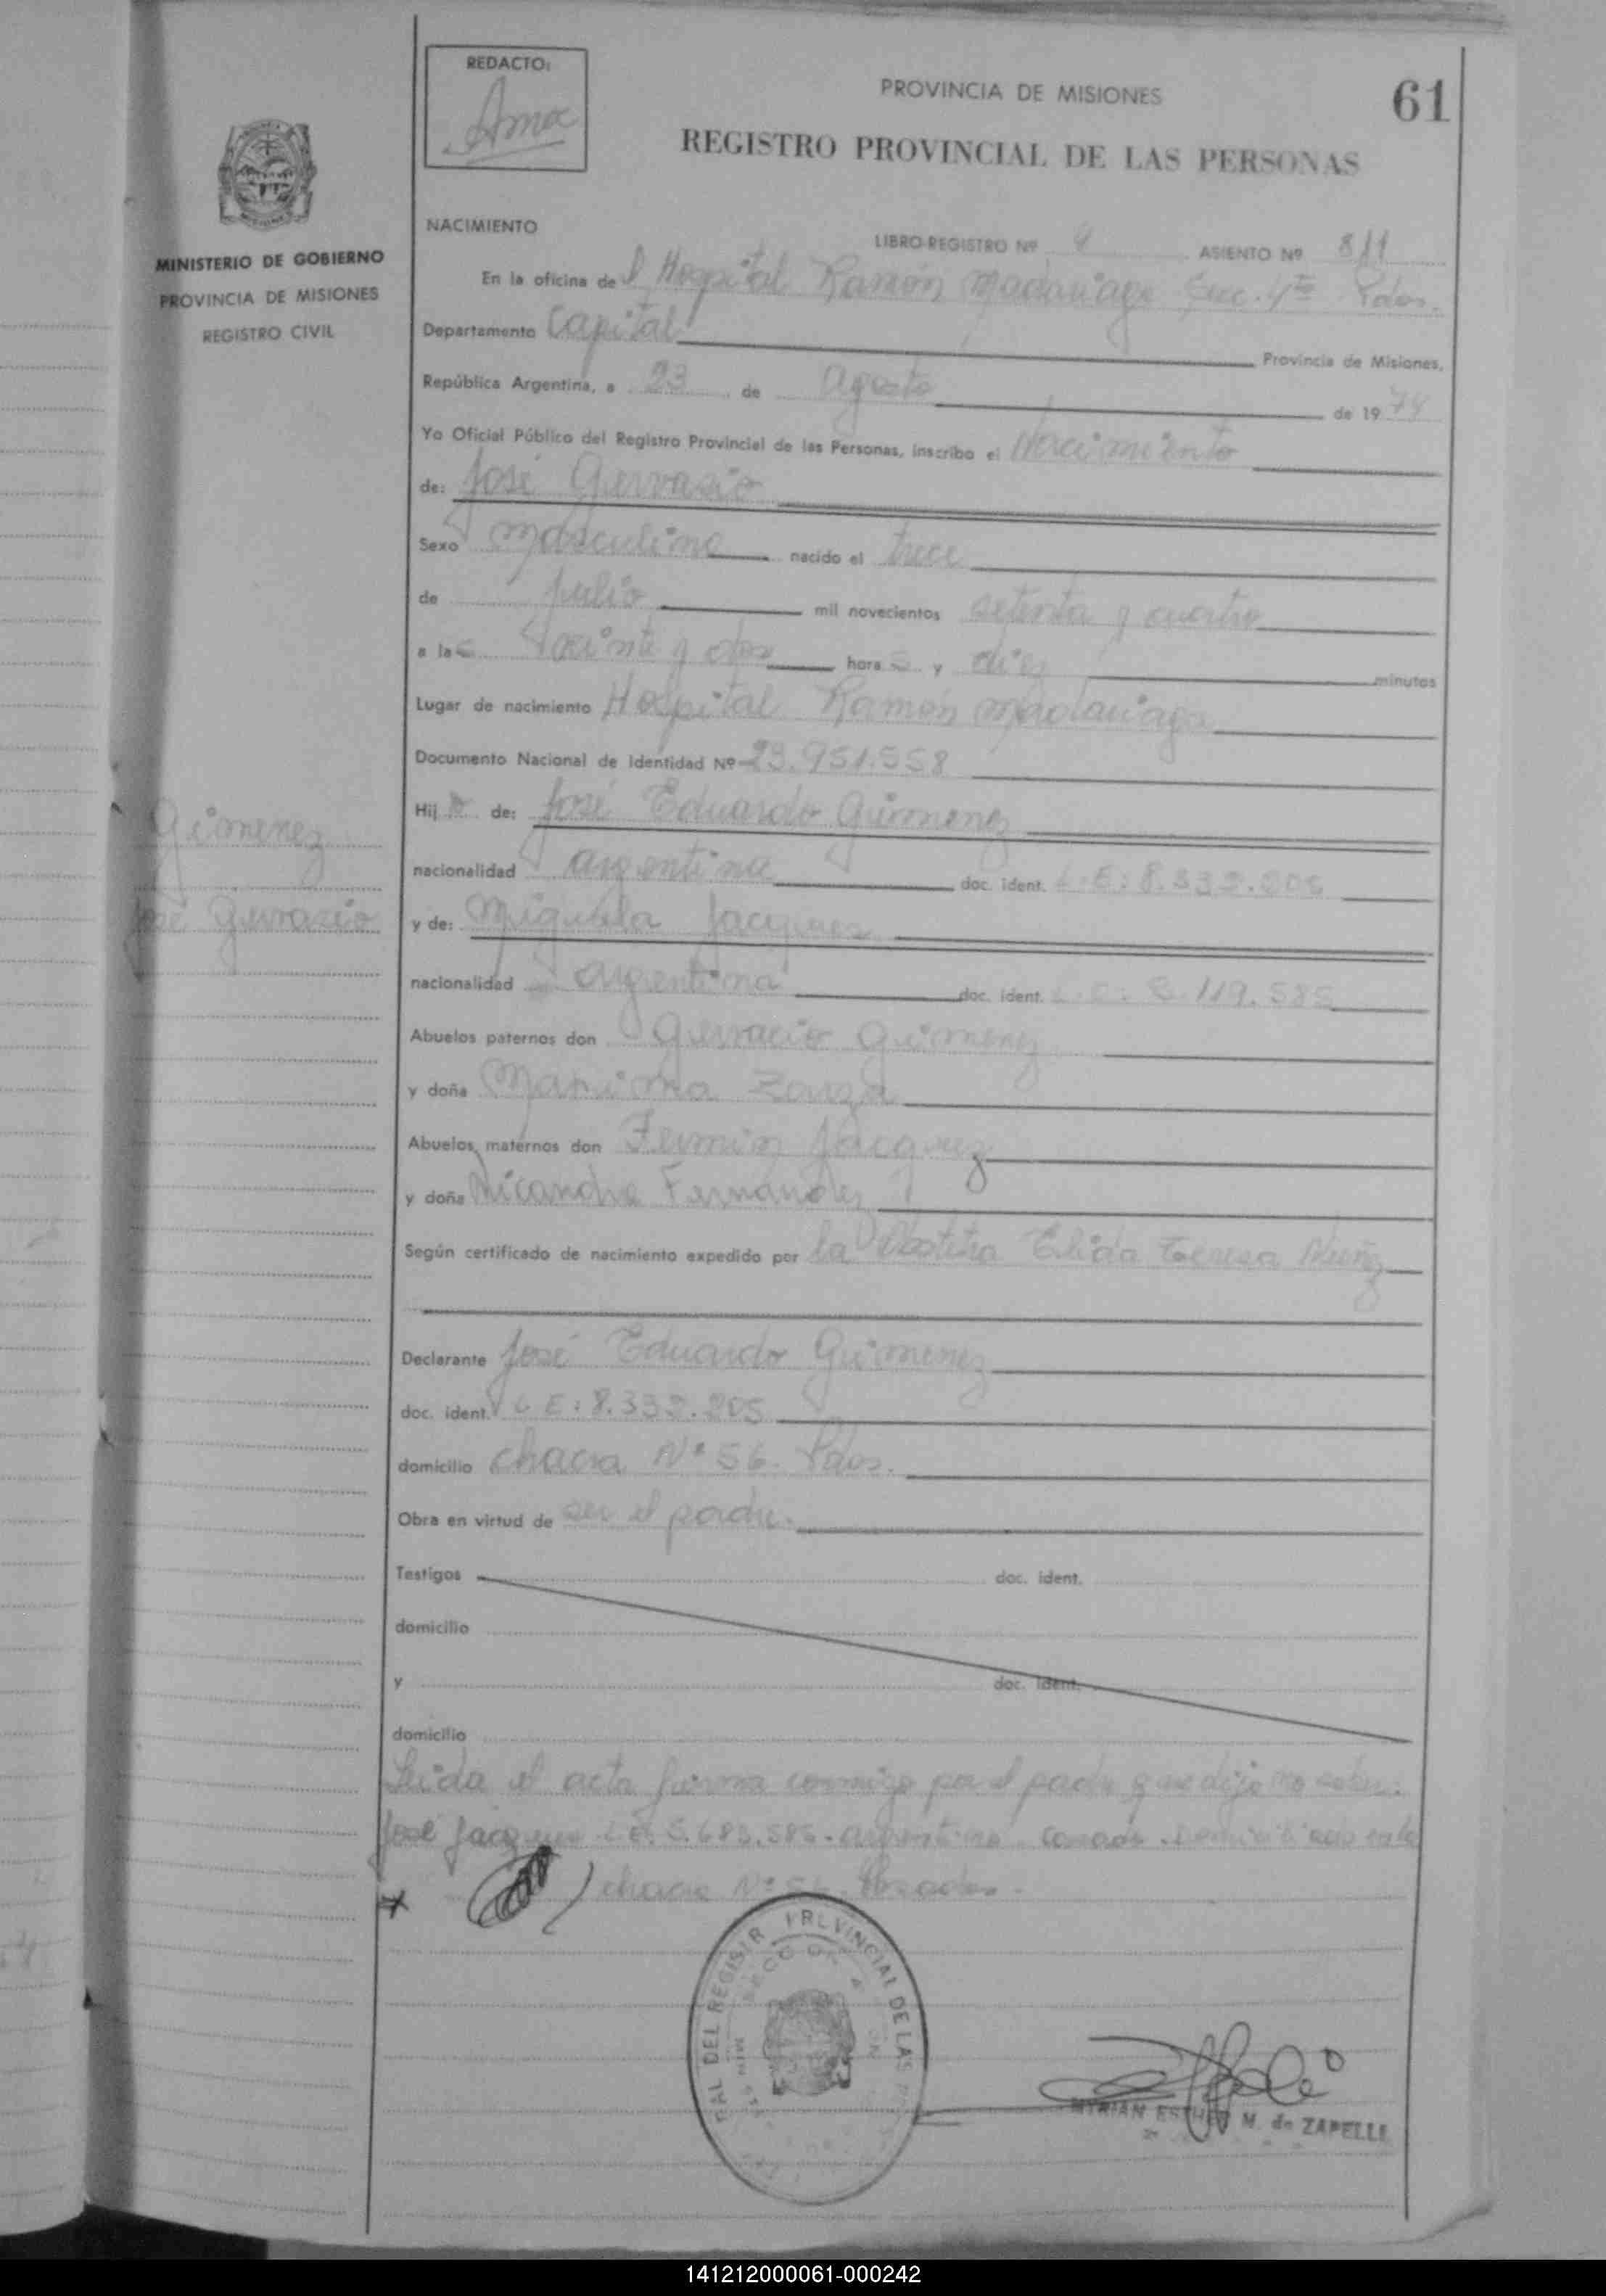 REDACTO:
Amoc
PROVINCIA DE MISIONES
61
REGISTRO PROVINCIAL DE LAS PERSONAS
MINISTERIO DE GOBIERNO
PROVINCIA DE MISIONES
REGISTRO CIVIL
NACIMIENTO
LIBRO-REGISTRO Nº 4 ASIENTO Nº 811
En la oficina del Hospital Ramón Madariaga Secc. 4ta Pdas.
Departamento Capital Provincia de Misiones,
República Argentina, a 23 de Agosto de 1974
Yo Oficial Público del Registro Provincial de las Personas, inscribo el Nacimiento
de: José Gervacio
Sexo masculino nacido el trece
de julio mil novecientos setenta y cuatro
a las veinte y dos horas y diez minutos
Lugar de nacimiento Hospital Ramón Madariaga
Documento Nacional de Identidad Nº 23.951.558
Hijo de: José Eduardo Gimenez
Gimenez
nacionalidad argentina doc. ident. L.E: 8.332.205
José Gervacio
y de: Miguela Jacquez
nacionalidad argentina doc. ident. L.C: 119.585
Abuelos paternos don Gervacio Gimenez
y doña Maxima Zarza
Abuelos maternos don Fermin Jacquez
y doña Nicandra Fernandez
Según certificado de nacimiento expedido por la Obstetra Elida Teresa
Declarante José Eduardo Gimenez
doc. ident. L E: 8.332.205
domicilio chacra Nº 56. Pdas.
Obra en virtud de ser el padre.
Testigos doc. ident.
domicilio
y doc. ident.
domicilio
Leida el acta firma conmigo por el padre que dijo no saber:
José Jacquez L.E. 5.683.585. argentino casado. Domiciliado en la
chacra Nº 56 Posadas.
MYRIAN ESTHER M. de ZAPELLI
141212000061-000242